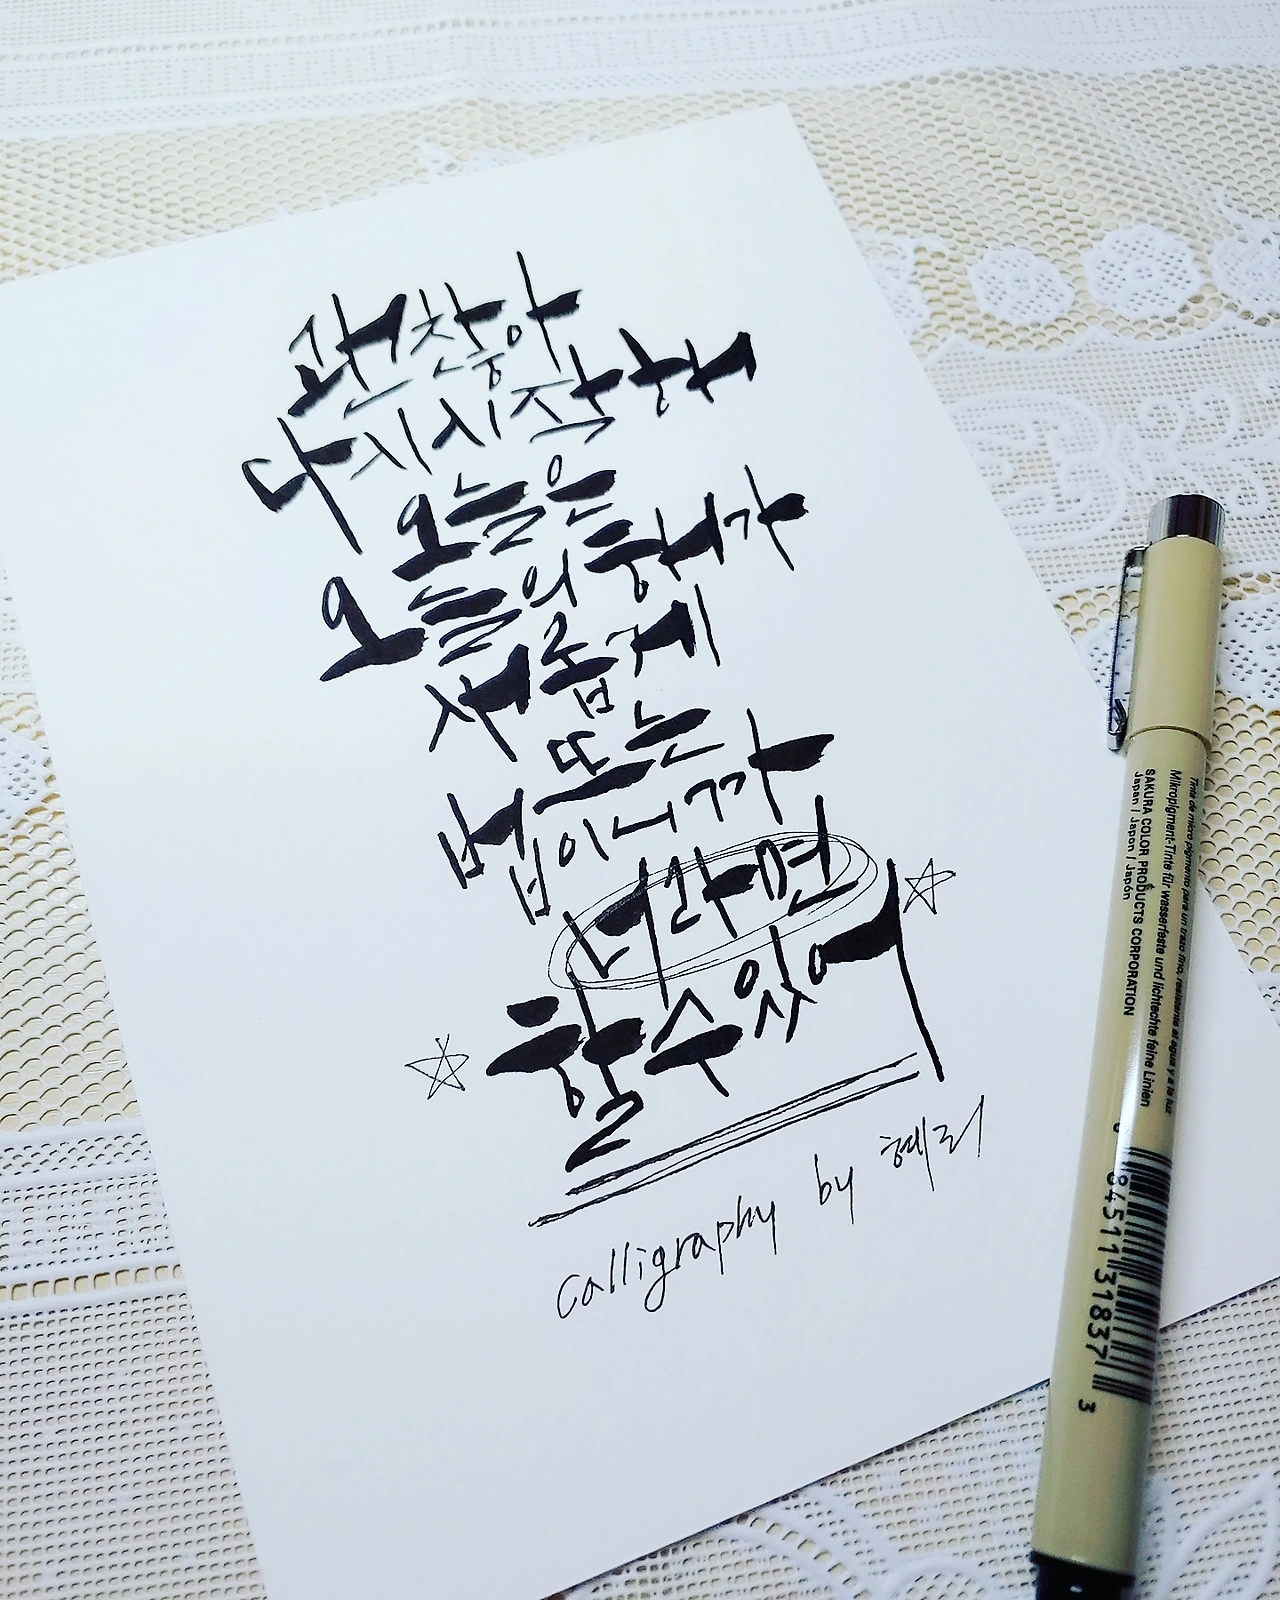 괜찮아
다시 시작해
오늘은
오늘의 해가
새롭게
또 뜨는
법이니까
너라면
할 수 있어
Calligraphy by 혜리
Tinta de micro pigmento para un trazo fino, resistente al agua y a la luz
Mikropigment-Tinte für wasserfeste und lichtechte feine Linien
SAKURA COLOR PRODUCTS CORPORATION
Japan / Japon / Japón
84511 31837 3